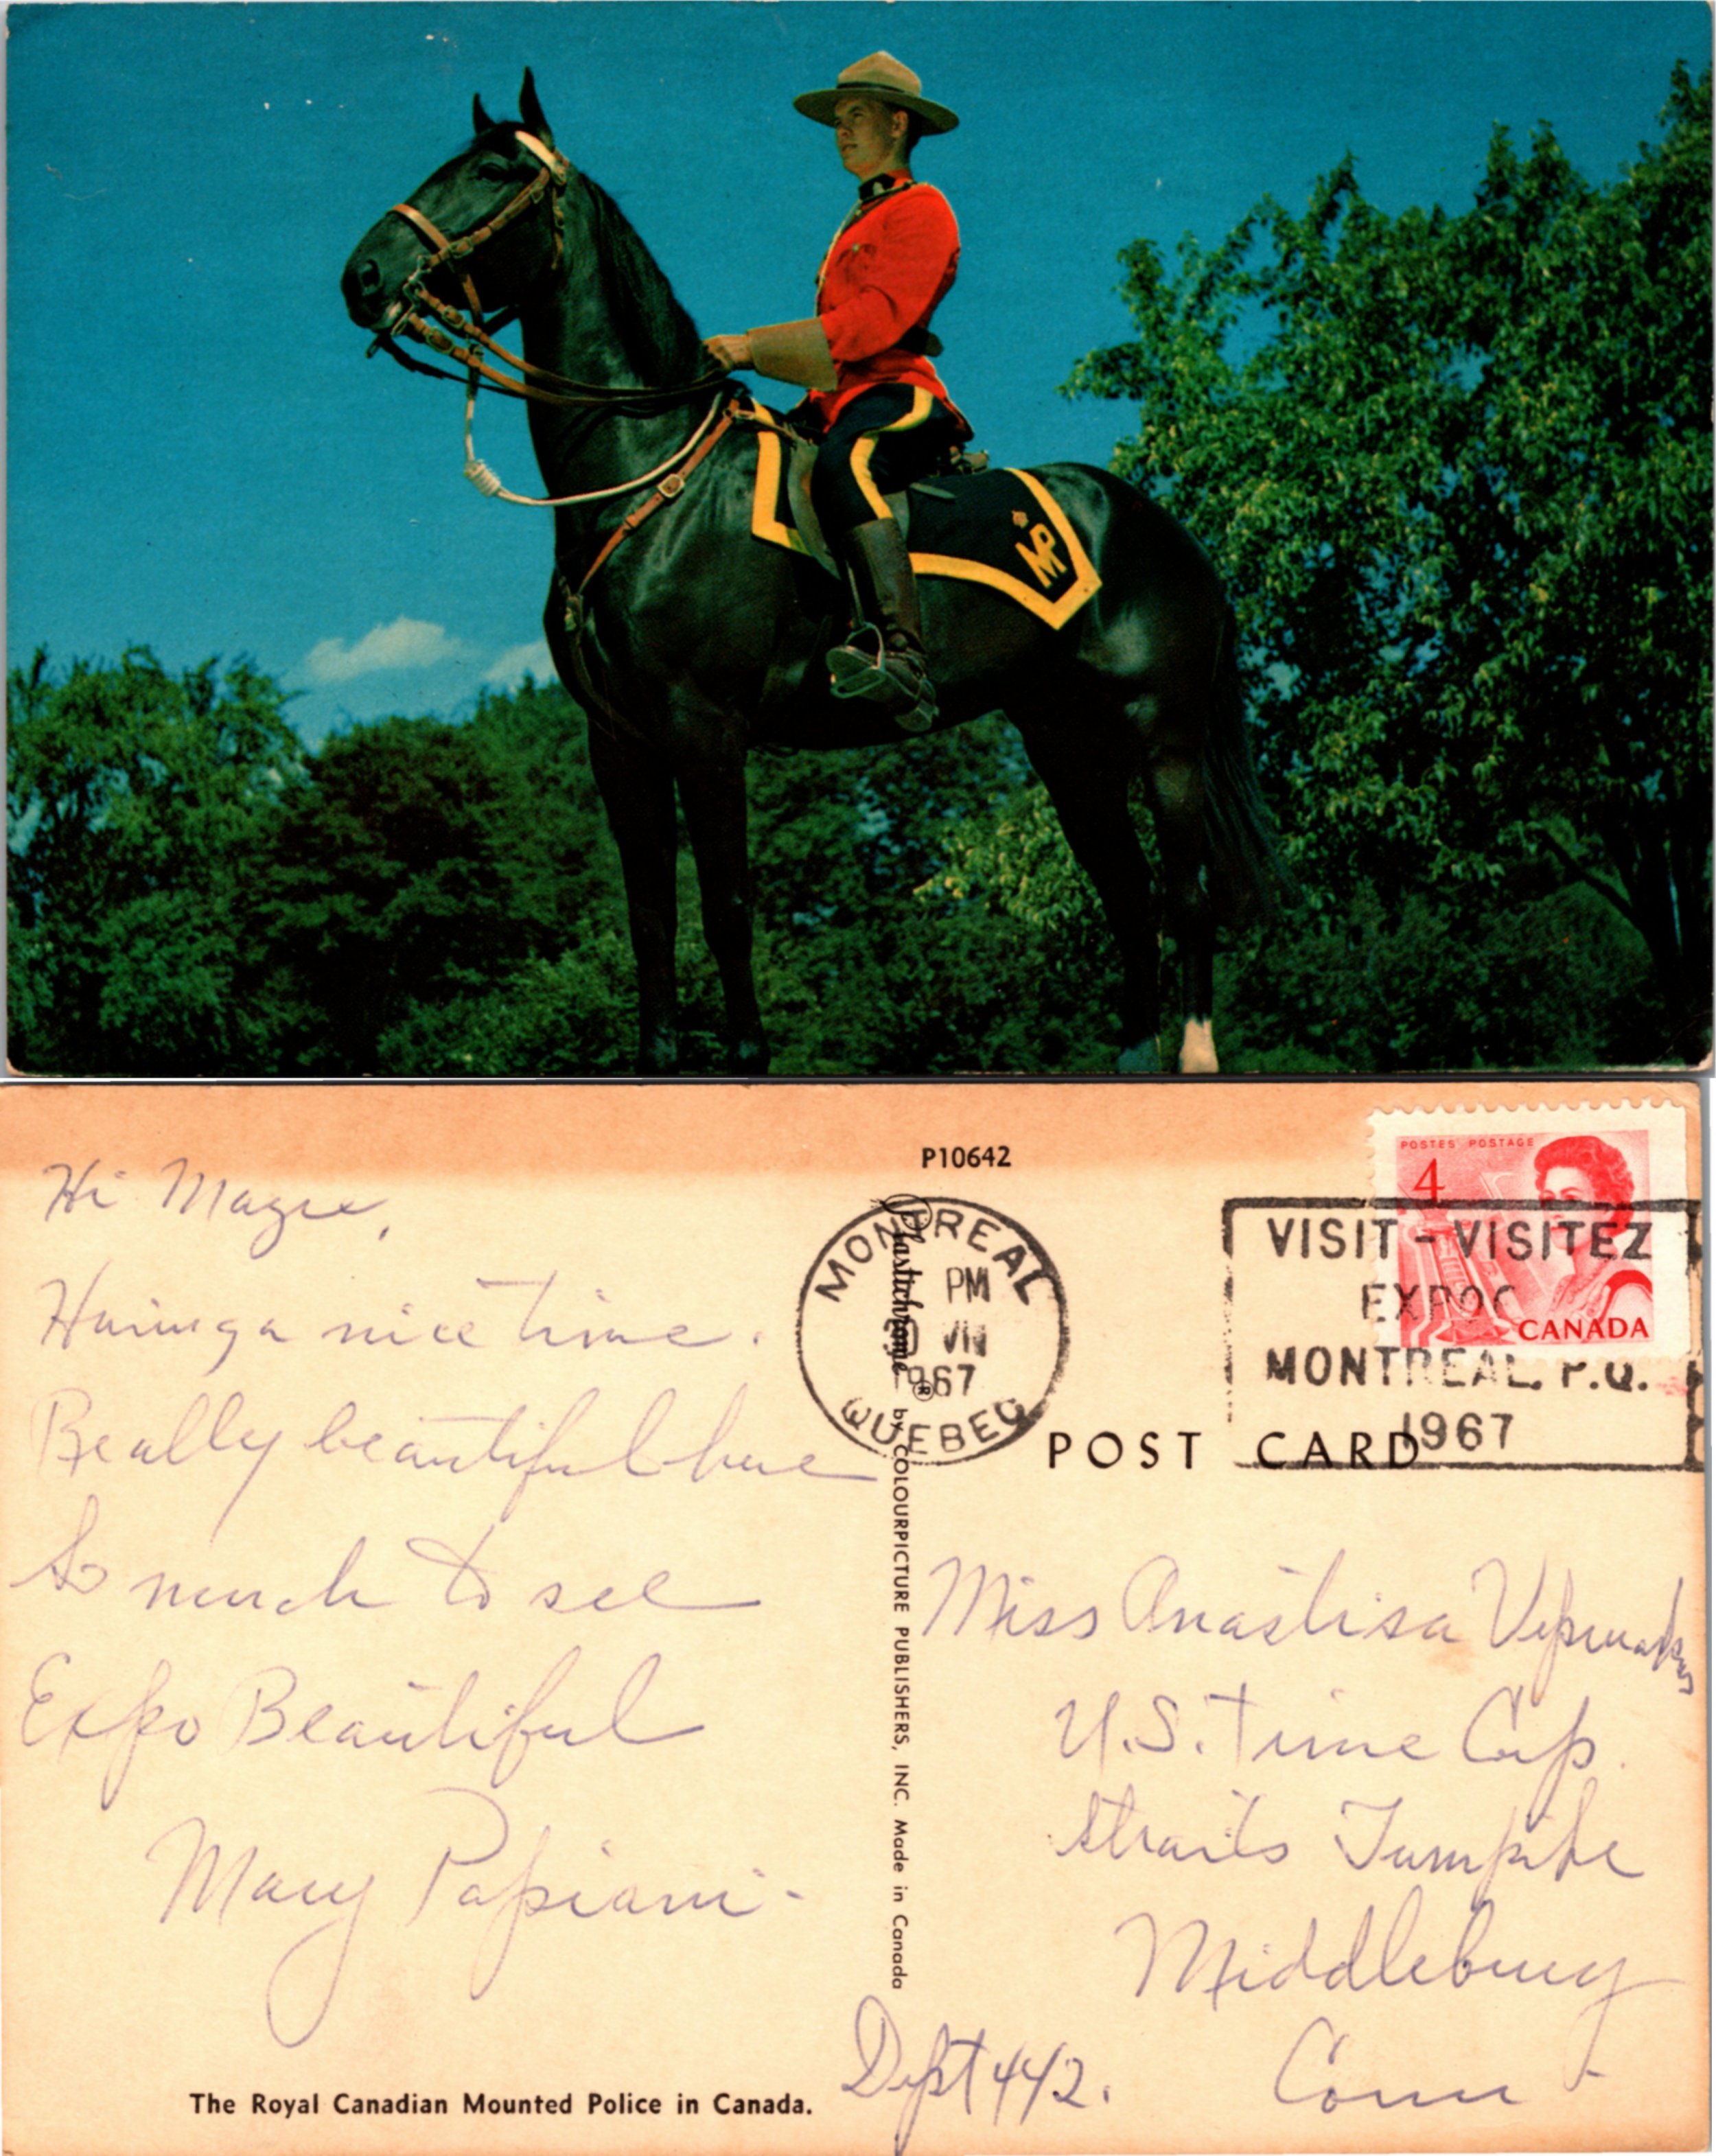 MP
P10642
Hi Magie,
Having a nice time.
Really beautiful here
So much to see
Expo Beautiful
Mary Papiani -
The Royal Canadian Mounted Police in Canada.
Plastichrome ® by COLOURPICTURE PUBLISHERS, INC. Made in Canada
MONTREAL
PM
VII
1967
QUEBEC
POSTES POSTAGE
4
CANADA
VISIT - VISITEZ
MONTREAL, P.Q.
1967
POST CARD
Miss
U.S. Time Corp.
Straits Turnpike
Middlebury
Conn
Dept 442.